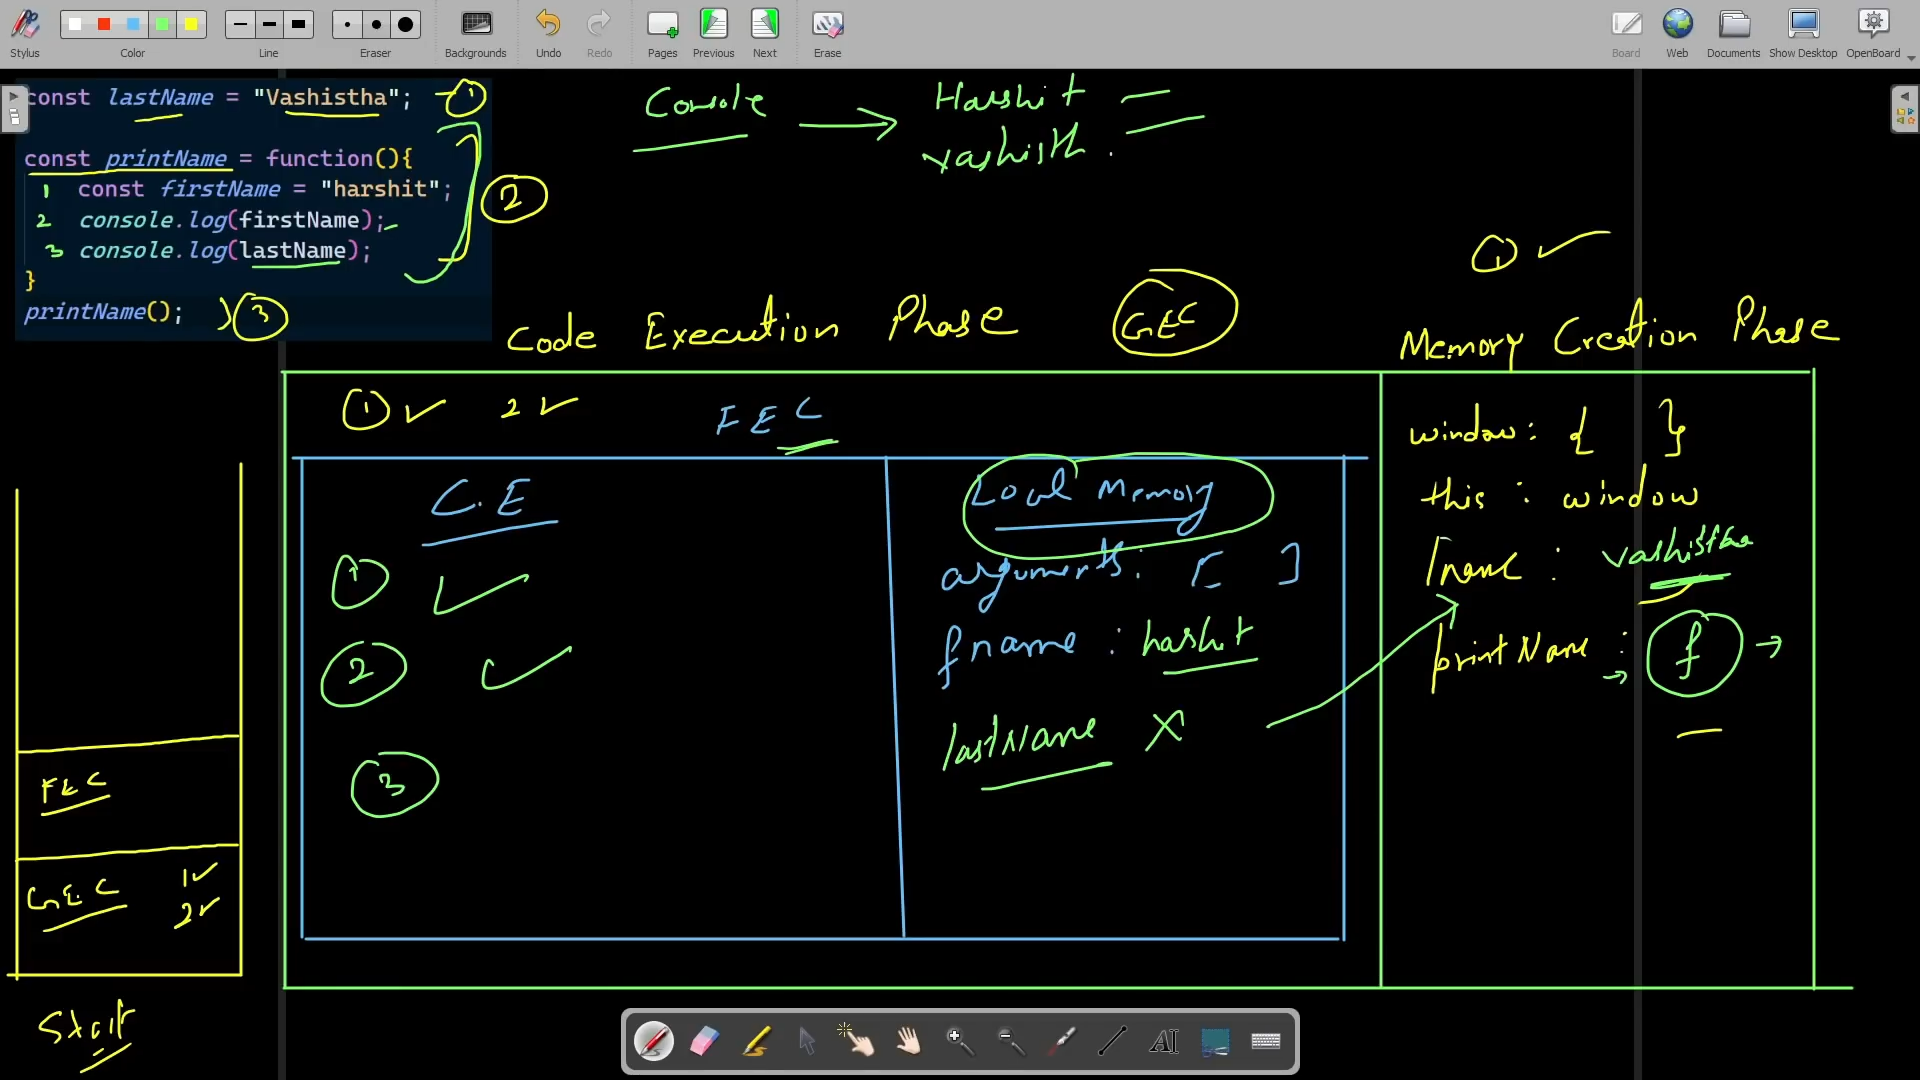 Stylus
Color
Line
Eraser
Backgrounds
Undo
Redo
Pages
Previous
Next
Erase
Board
Web
Documents
Show Desktop
OpenBoard
const lastName = "Vashistha"; 1
const printName = function(){
1 const firstName = "harshit";
2 console.log(firstName);
3 console.log(lastName);
}
2
printName(); 3
Console → Harshit
Vashisth.
1 ✓
Code Execution Phase GEC
Memory Creation Phase
1 ✓ 2 ✓ FEC
C.E
1 ✓
2 ✓
3
Local Memory
arguments: [ ]
fname : harshit
lastName X
window: { }
this : window
lname : vashistha
printName : f →
FEC
GEC 1✓
2✓
AI